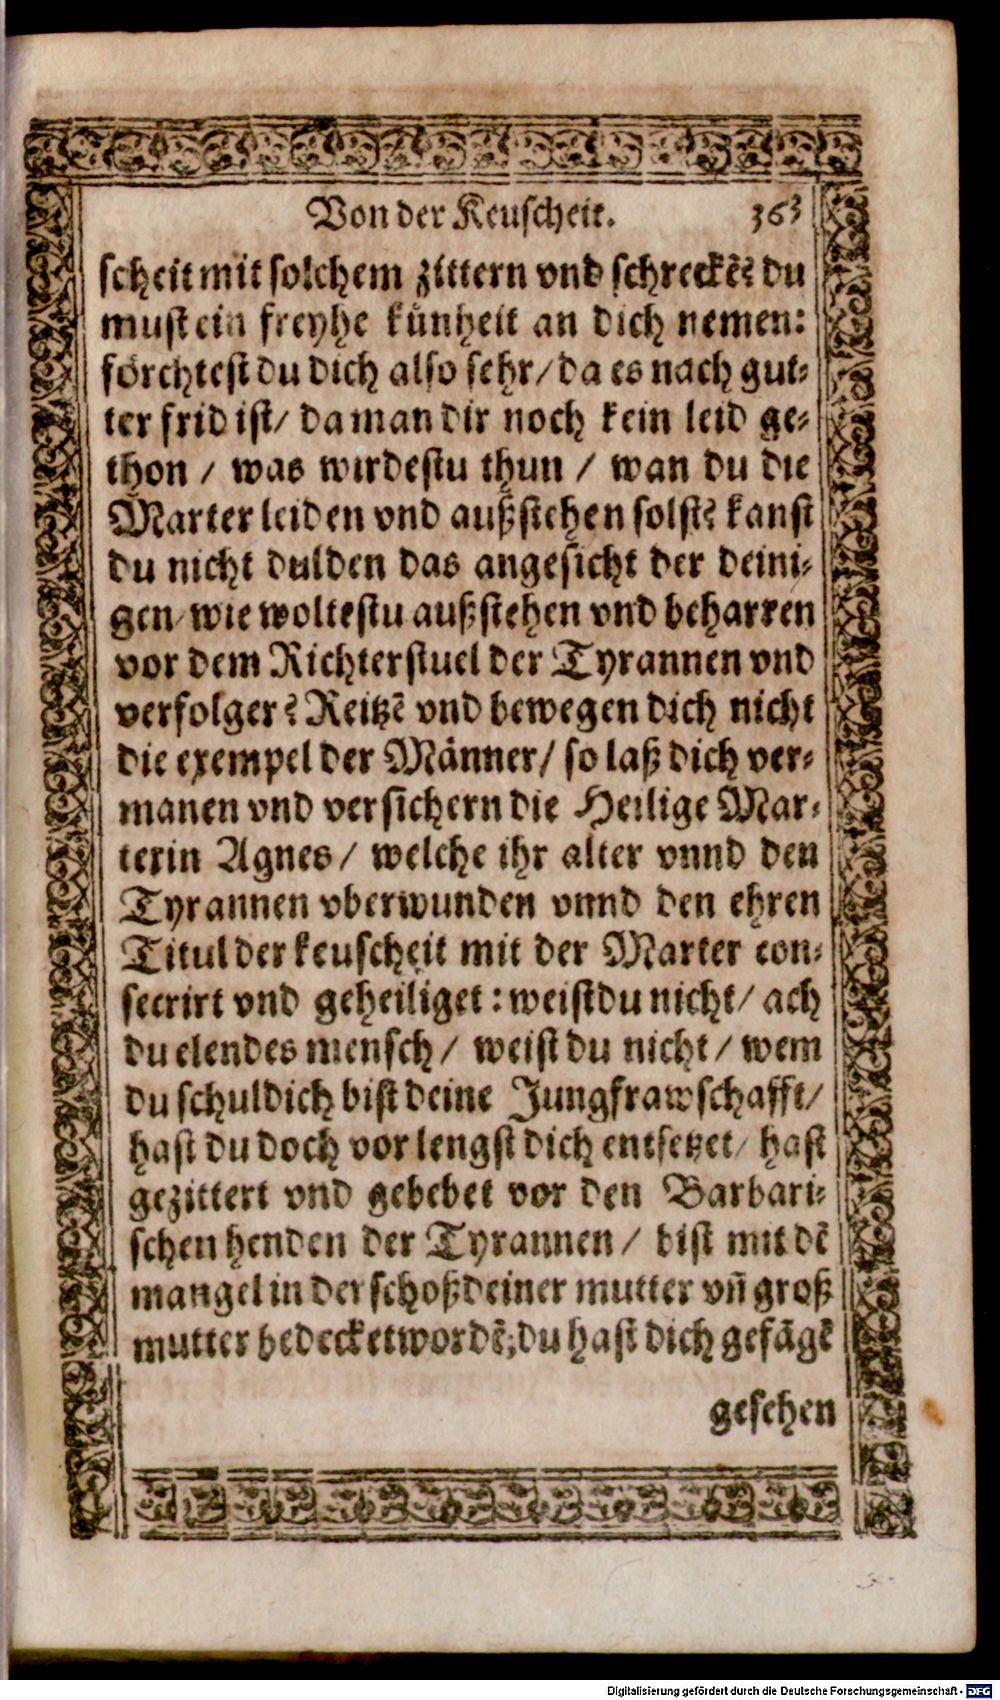 Von der Keuscheit. 363
scheit mit solchem zittern vnd schreckẽ? du
must ein freyhe künheit an dich nemen:
förchtest du dich also sehr/ da es nach gut⸗
ter frid ist/ da man dir noch kein leid ge⸗
thon / was wirdestu thun / wan du die
Marter leiden vnd außstehen solst? kanst
du nicht dulden das angesicht der deini⸗
gen/ wie woltestu außstehen vnd beharren
vor dem Richterstuel der Tyrannen vnd
verfolger? Reitzẽ vnd bewegen dich nicht
die exempel der Männer/ so laß dich ver⸗
manen vnd versichern die Heilige Mar⸗
terin Agnes/ welche ihr alter vnnd den
Tyrannen vberwunden vnnd den ehren
Titul der keuscheit mit der Marter con⸗
secrirt vnd geheiliget: weistdu nicht/ ach
du elendes mensch/ weist du nicht/ wem
du schuldich bist deine Jungfrawschafft/
hast du doch vor lengst dich entsetzet/ hast
gezittert vnd gebebet vor den Barbari⸗
schen henden der Tyrannen/ bist mit dẽ
mangel in der schoß deiner mutter vñ groß
mutter bedecket wordẽ; du hast dich gefãgẽ
gesehen
Digitalisierung gefördert durch die Deutsche Forschungsgemeinschaft - DFG